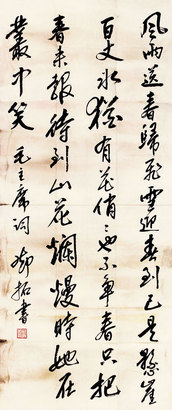 風雨送春歸飛雪迎春到已是懸崖
百丈冰猶有花俏〻也不爭春只把
春来報待到山花爛熳時她在
叢中笑 毛主席詞 鄧拓書